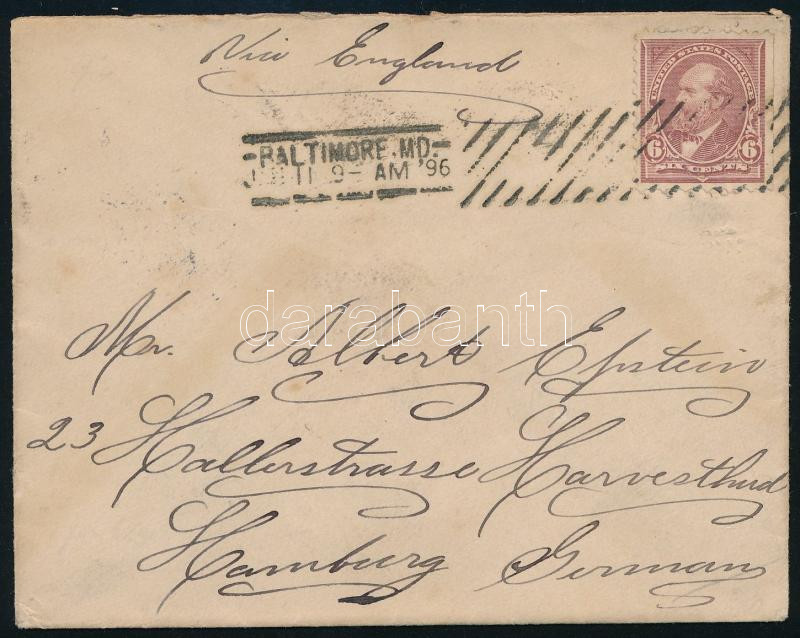 Via England
UNITED STATES POSTAGE
6 6
SIX CENTS
BALTIMORE, MD.
11 9- AM '96
4
darabanth
Mr. Albert Epstein
23 Hallerstrasse Harvesthud
Hamburg Germany